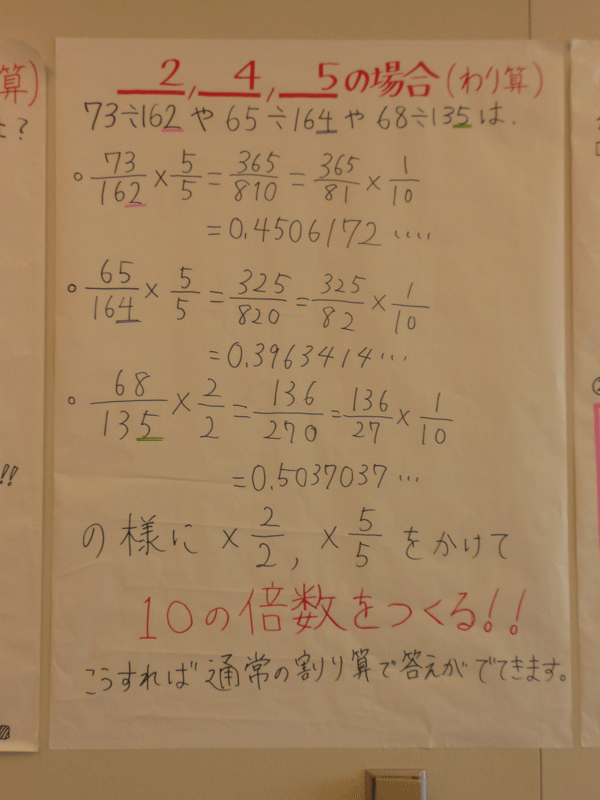 __2, __4, __5の場合(わり算)
73÷162 や 65÷164 や 68÷135 は.
○ 73/162 × 5/5 = 365/810 = 365/81 × 1/10
= 0.4506172 ‥‥
○ 65/164 × 5/5 = 325/820 = 325/82 × 1/10
= 0.3963414 …
○ 68/135 × 2/2 = 136/270 = 136/27 × 1/10
= 0.5037037 …
の様に × 2/2, × 5/5 をかけて
10の倍数をつくる!!
こうすれば通常の割り算で答えがでてきます。
算)
?
!!